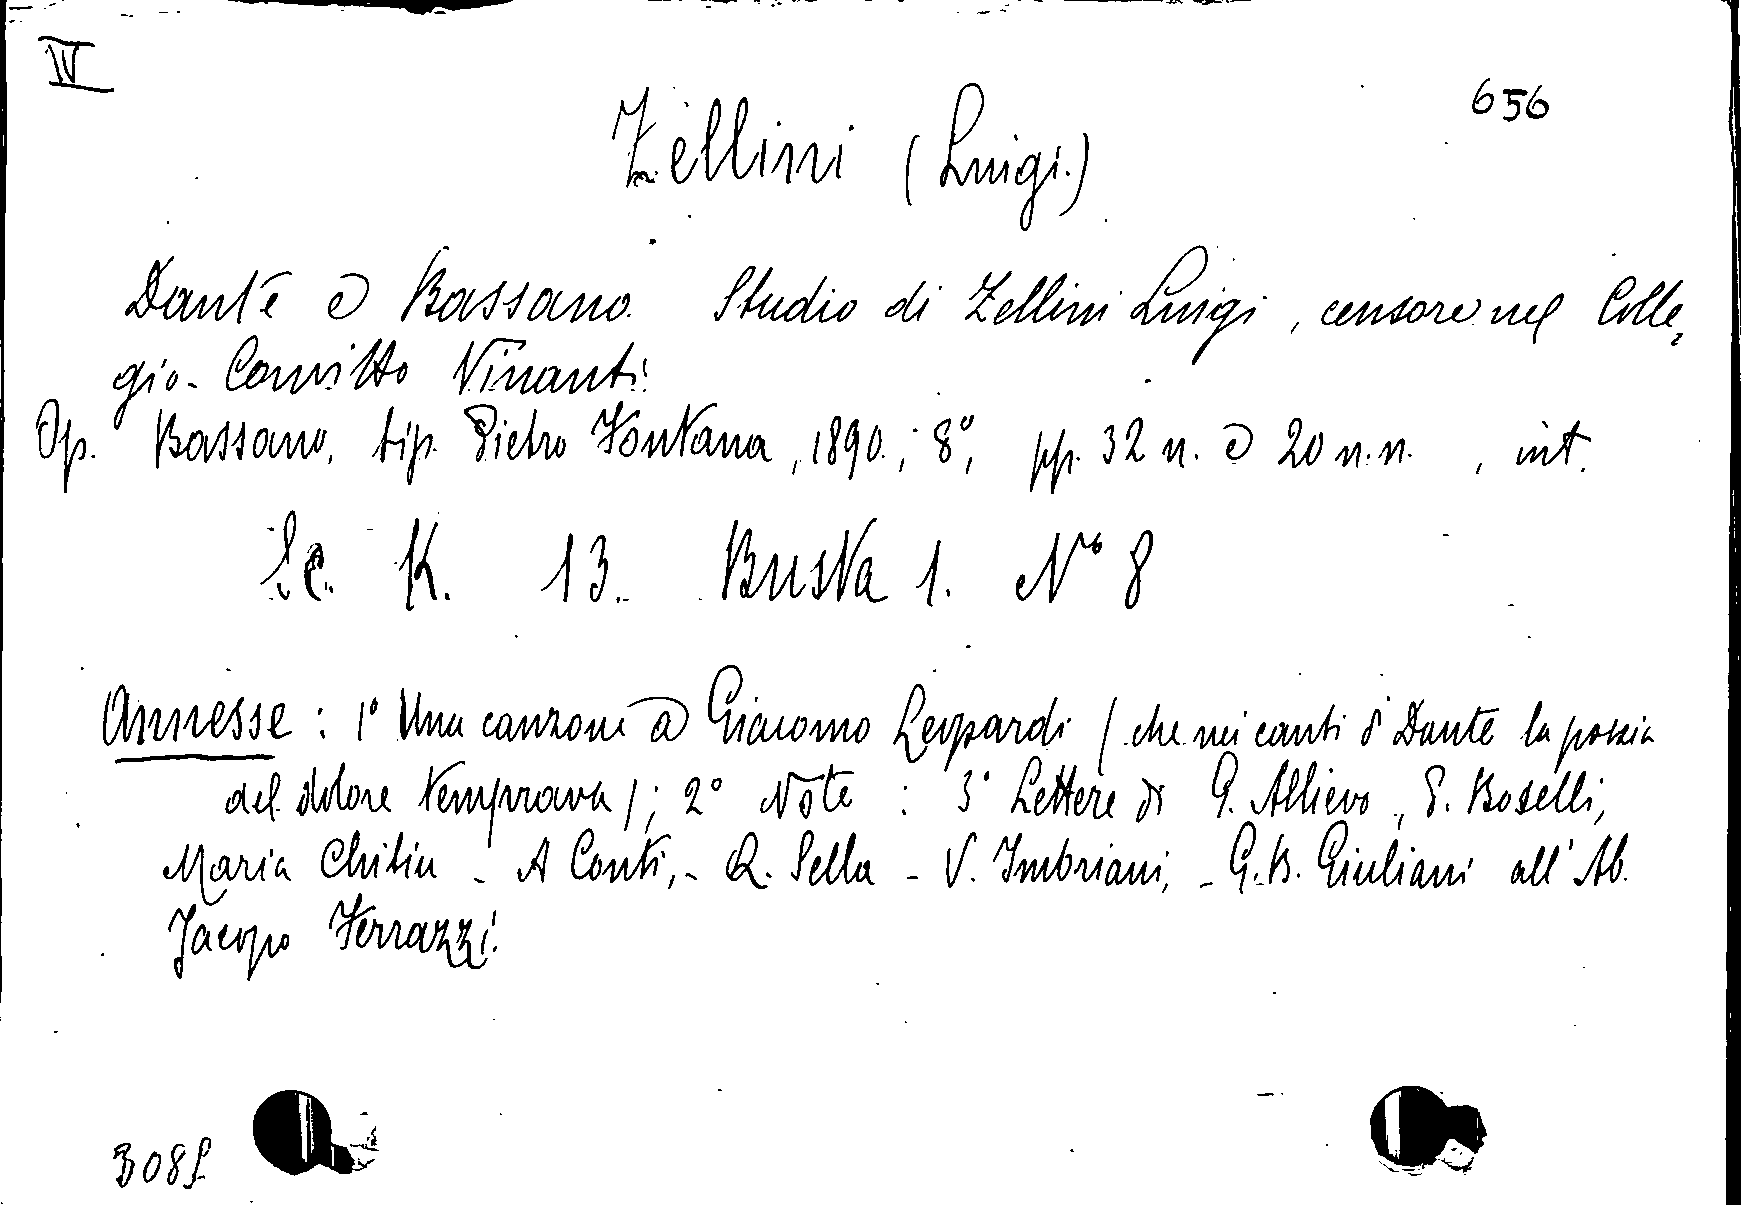 IV
656
Zellini (Luigi.)
Dante e Bassano. Studio di Zellini Luigi, censore nel Colle-
gio-Convitto Vinanti.
Op. Bassano, tip. Pietro Fontana, 1890.; 8°, pp. 32 n. e 20 n.n. , int.
K. 13. Busta 1. N° 8
Annesse : 1° Una canzone a Giacomo Leopardi (che nei canti di Dante la poesia
del dolore temprava); 2° Note : 3° Lettere di G. Allievo, Boselli,
Maria - A Conti, - Q. Sella - V. Imbriani, - G.B. Giuliani all' Ab.
Jacopo Ferrazzi.